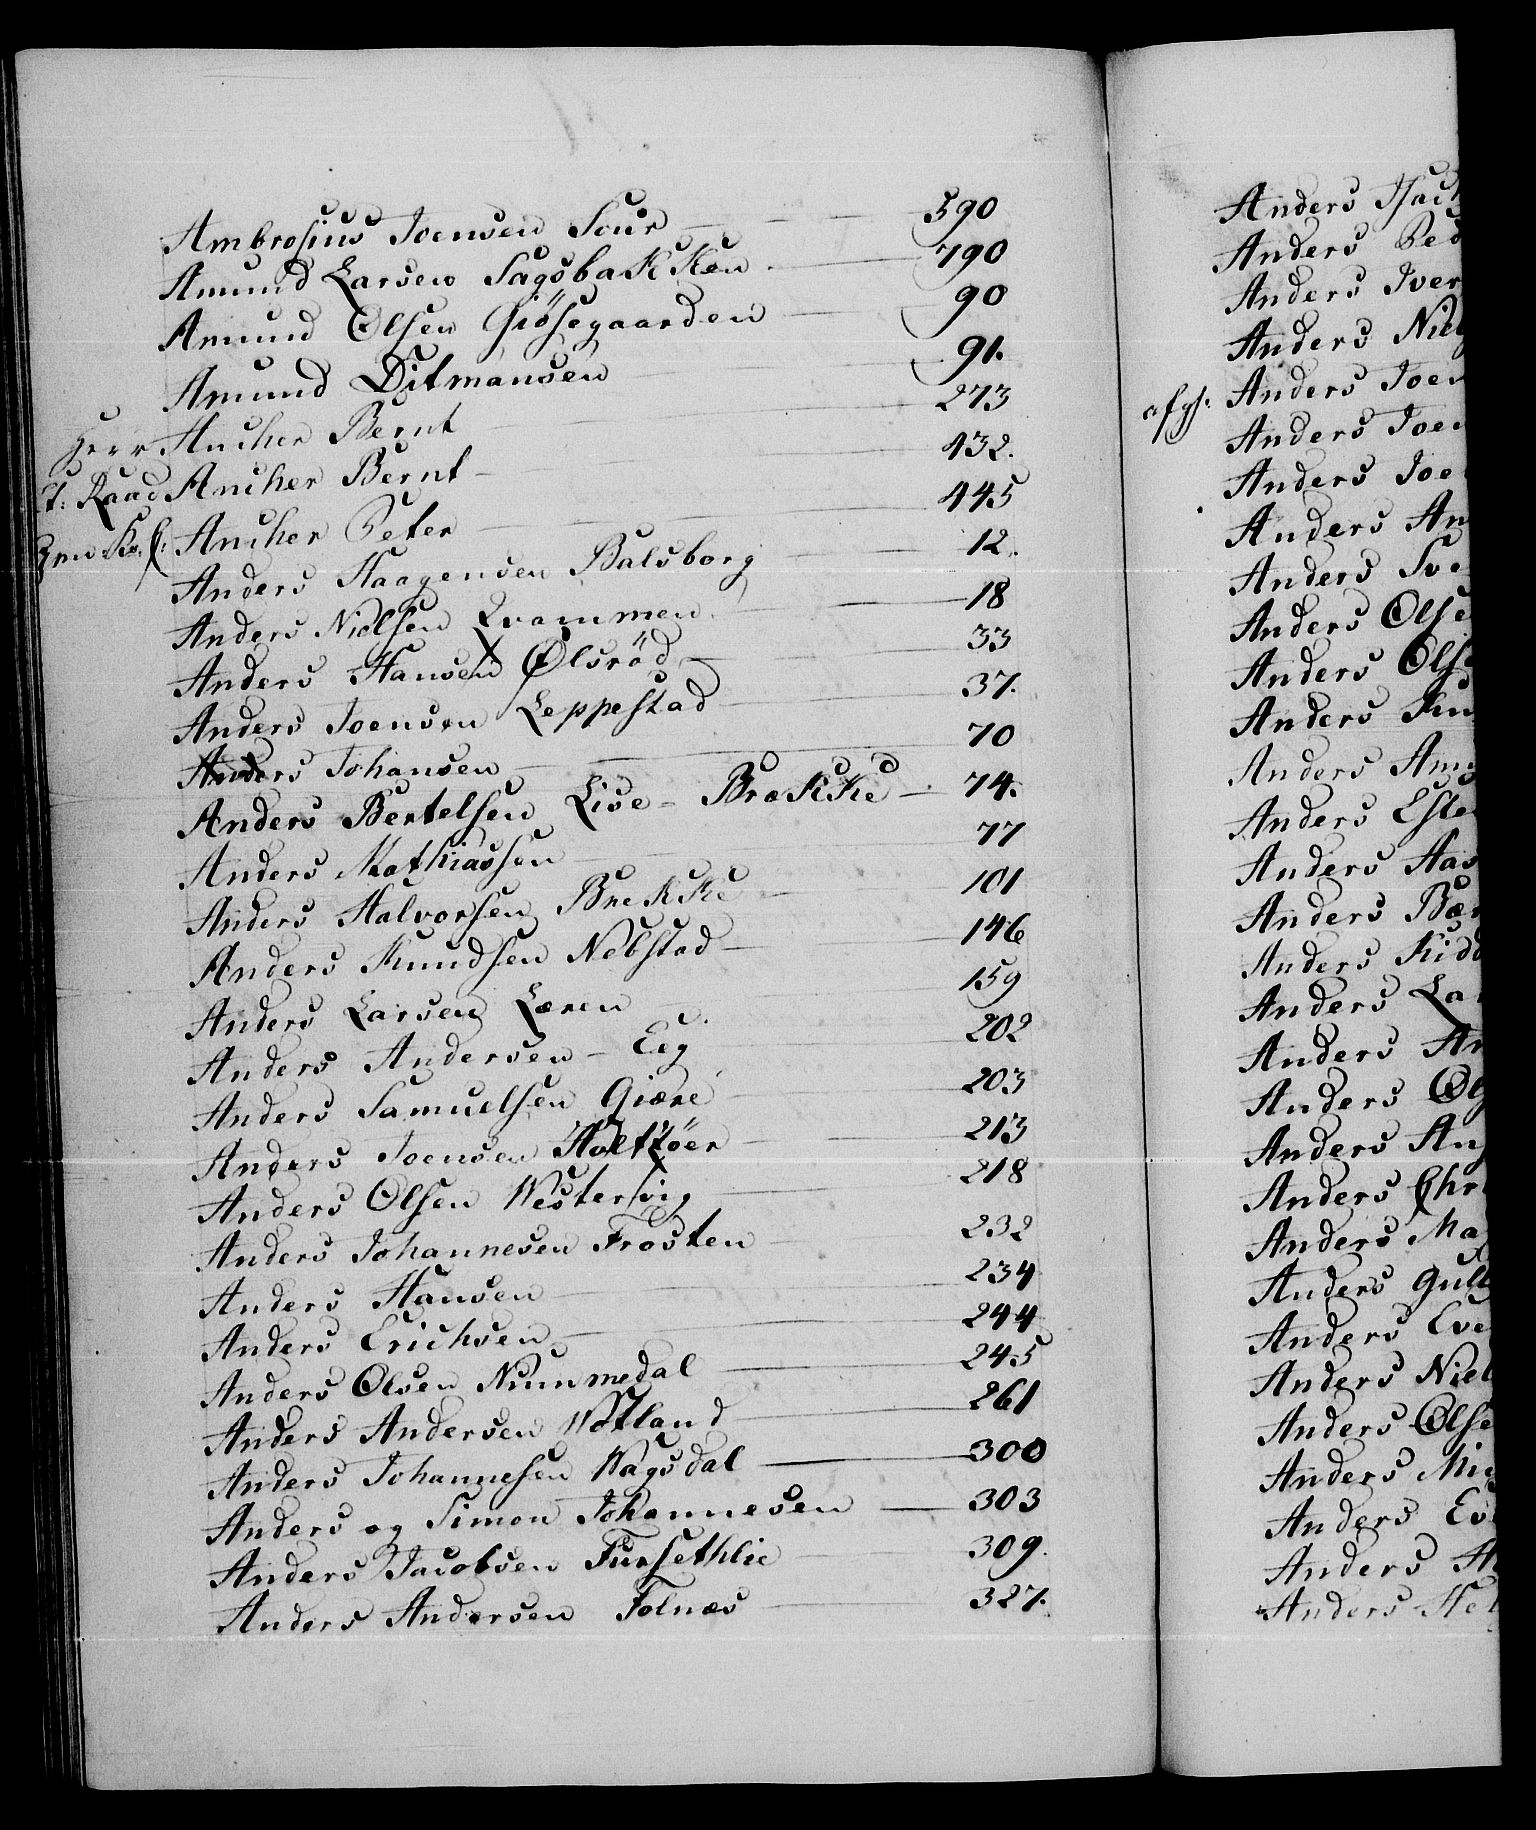 Ambrosius Joensen Sour 590
Amund Larsen Sagsbakken 790
Amund Olsen Giösegaarden 90
Amund Ditmansen 91.
Herr Ancher Bernt 273
Et: Raad Ancher Bernt 432.
Ancher Peter 445
Anders Haagensen Balsborg 12.
Anders Nielsen Qvammen 18
Anders Hansen Ølsröd 33
Anders Joensen Leppestad 37.
Anders Johansen 70
Anders Bertelsen Lise-Brække 74.
Anders Mathiassen 77
Anders Halvorsen Brekke 101
Anders Knudsen Nebstad 146
Anders Larsen Læren 159
Anders Andersen Eeg 202
Anders Samuelsen Giære 203
Anders Joensen 213
Anders Olsen Westervig 218
Anders Johannesen Frosten 232
Anders Hansen 234
Anders Erichsen 244
Anders Olsen Nummedal 245
Anders Andersen Watland 261
Anders Johannesen Wagsdal 300
Anders og Simon Johannesen 303
Anders Jacobsen Fursethlie 309.
Anders Andersen Folnæs 327.
Anders Isac
Anders Ped
Anders Iver
Anders Niel
Anders Joen
Anders Joen
Anders Joe
Anders An
Anders Sve
Anders Olse
Anders Ols
Anders Knu
Anders Amu
Anders Este
Anders Aas
Anders Bæ
Anders Kidd
Anders Lar
Anders An
Anders Ols
Anders An
Anders Chr
Anders Ma
Anders Gull
Anders Eve
Anders Niel
Anders Olse
Anders Mic
Anders Ev
Anders H
Anders Hel